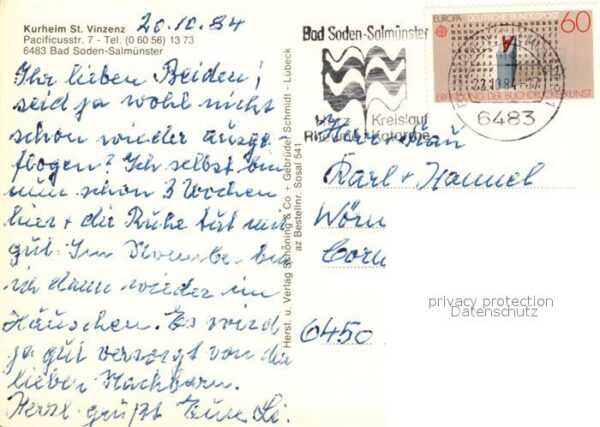 Kurheim St. Vinzenz
Pacificusstr. 7 - Tel. (0 60 56) 13 73
6483 Bad Soden-Salmünster
20.10.84
Ihr lieben Beiden,
seid ja wohl nicht
schon wieder ausge-
flogen? Ich selbst bin
nun schon 3 Wochen
hier + die Ruhe tut mir
gut. Im November bin
ich dann wieder im
Häuschen. Es wird
ja gut versorgt von den
lieben Nachbarn.
Herzl. grüßt Eure
Herst. u. Verlag Schöning & Co + Gebrüder Schmidt - Lübeck
az Bestellnr. Sosal 541
Bad Soden-Salmünster
Herz Kreislauf
Rheuma Katarrhe
EUROPA DEUTSCHE BUNDESPOST 60
ERFINDUNG DER BUCHDRUCKERKUNST
6483
Herr + Frau
Karl +
6450
privacy protection
Datenschutz